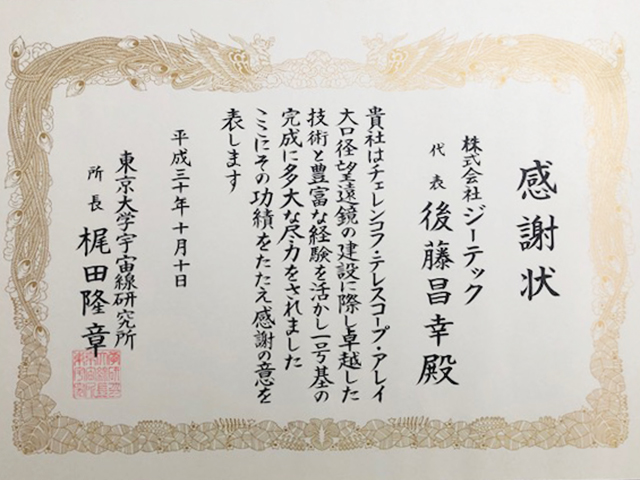 感謝状
株式会社 ジーテック
代表 後藤昌幸殿
貴社はチェレンコフ・テレスコープ・アレイ
大口径望遠鏡の建設に際し卓越した
技術と豊富な経験を活かし一号基の
完成に多大な尽力をされました
ここにその功績をたたえ感謝の意を
表します
平成三十年十月十日
東京大学宇宙線研究所
所長 梶田隆章